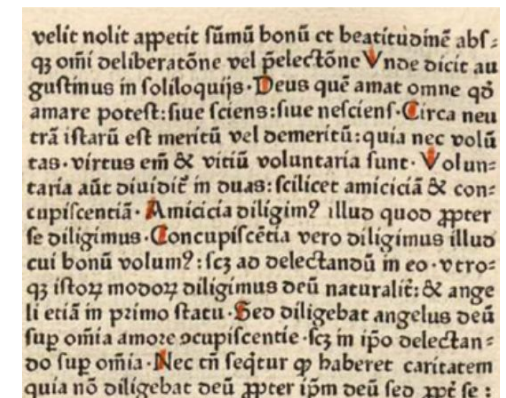 velit nolit appetit sūmū bonū et beatitudinē abs⸗
qꝫ om̄i deliberatōne vel p̄electōne Vnde dicit au
gustinus in soliloquijs·Deus quē amat omne qđ
amare potest:siue sciens:siue nesciens·Circa neu
trā istarū est meritū vel demeritū:quia nec volū
tas·virtus em̄ & vitiū voluntaria sunt·Volun⸗
taria aūt diuidit̄ in duas:scilicet amiciciā & con⸗
cupiscentiā·Amicicia diligim? illud quod ꝓpter
se diligimus·Concupiscētia vero diligimus illud
cui bonū volum?:scꝫ ad delectandū in eo·vtro⸗
qꝫ istoꝝ modoꝝ diligimus deū naturalit̄:& ange
li etiā in primo statu·Sed diligebat angelus deū
suꝑ om̄ia amore ↄcupiscentie·scꝫ in ip̄o delectan⸗
do suꝑ om̄ia·Nec tn̄ seq̄tur ꝙ haberet caritatem
quia nō diligebat deū ꝓpter ip̄m deū sed ꝓpt̄ se: